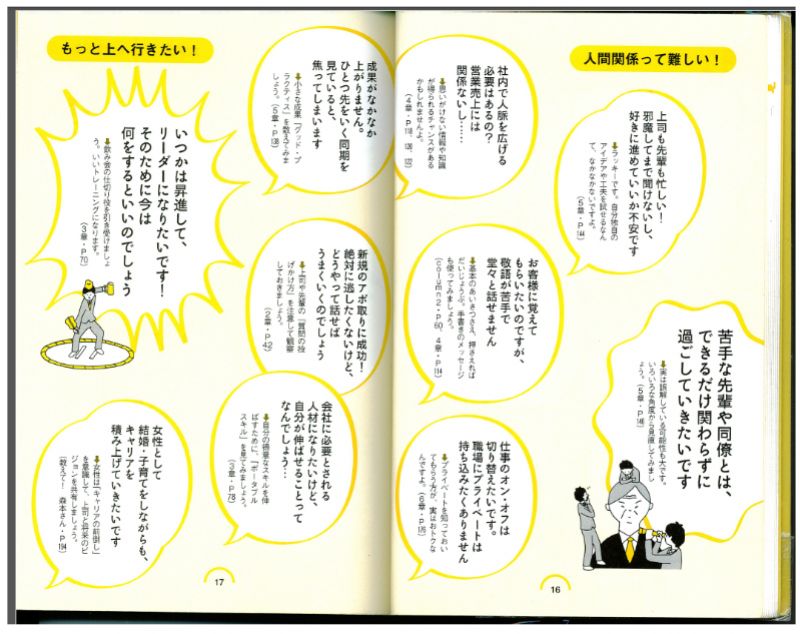 人間関係って難しい！
上司も先輩も忙しい！
邪魔してまで聞けないし、
好きに進めていいか不安です
➡ラッキーです。自分独自の
アイデアや工夫を試せるなん
て、なかなかないですよ。
(5章・P144)
苦手な先輩や同僚とは、
できるだけ関わらずに
過ごしていきたいです
➡実は誤解している可能性も大です。
いろいろな角度から見直してみまし
ょう。
(5章・P148)
社内で人脈を広げる
必要はあるの？
営業売上には
関係ないし……
➡思いがけない情報や知識
が得られるチャンスがある
かもしれませんよ。
(4章・P118、
お客様に覚えて
もらいたいのですが、
敬語が苦手で
堂々と話せません
➡基本のあいさつさえ、押さえれば
だいじょうぶ。手書きのメッセージ
も使ってみましょう。
(column2・P60、4章・P114)
仕事のオン・オフは
切り替えたいです。
職場にプライベートは
持ち込みたくありません
➡プライベートを知っておい
てもらう方が、実はおトクな
んですよ。
(6章・
16
もっと上へ行きたい！
成果がなかなか
上がりません。
ひとつ先をいく同期を
見ていると、
焦ってしまいます
➡小さな成果「グッド・プ
ラクティス」を数えてみま
しょう。(5章・P138)
新規のアポ取りに成功！
絶対に逃したくないけど、
どうやって話せば
うまくいくのでしょう
➡上司や先輩の「質問の投
げかけ方」を注意して観察
しておきましょう。
(2章・P42)
会社に必要とされる
人材になりたいけど、
自分が伸ばせることって
なんでしょう…
➡自分の得意なスキルを伸
ばすために、「ポータブル
スキル」を見てみましょう。
(3章・P78)
いつかは昇進して、
リーダーになりたいです！
そのために今は
何をするといいのでしょう
➡飲み会の仕切り役を引き受けましょ
う。いいトレーニングになります。
(3章・P70)
女性として
結婚・子育てをしながらも、
キャリアを
積み上げていきたいです
➡女性は「キャリアの前倒し」
を意識して、上司と将来のビ
ジョンを共有しましょう。
(教えて！ 森本さん・P194)
17